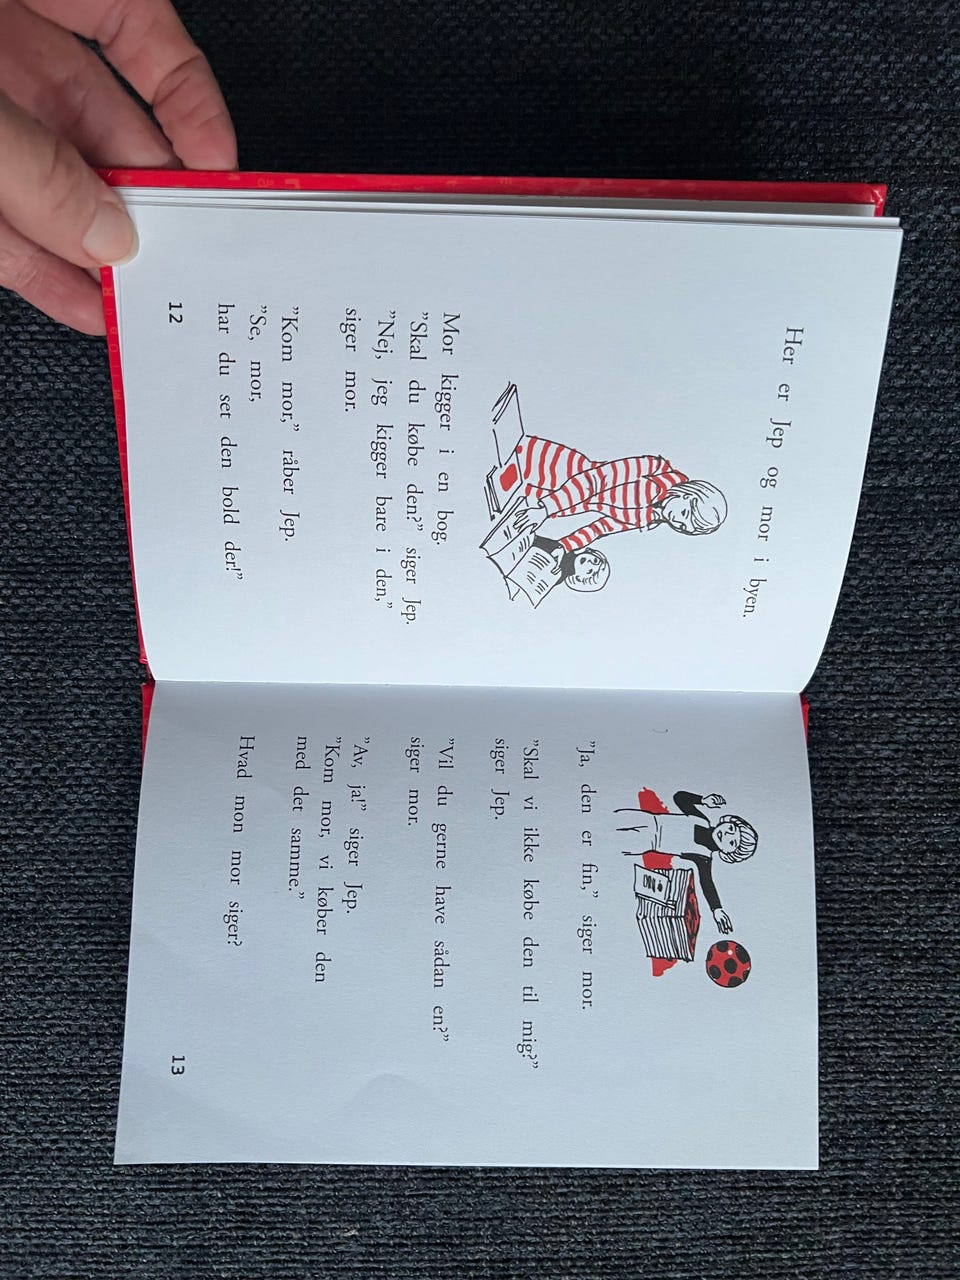 Her er Jep og mor i byen.
Mor kigger i en bog.
”Skal du købe den?” siger Jep.
”Nej, jeg kigger bare i den,”
siger mor.
”Kom mor,” råber Jep.
”Se, mor,
har du set den bold der!”
12
”Ja, den er fin,” siger mor.
”Skal vi ikke købe den til mig?”
siger Jep.
”Vil du gerne have sådan en?”
siger mor.
”Av, ja!” siger Jep.
”Kom mor, vi køber den
med det samme.”
Hvad mon mor siger?
13